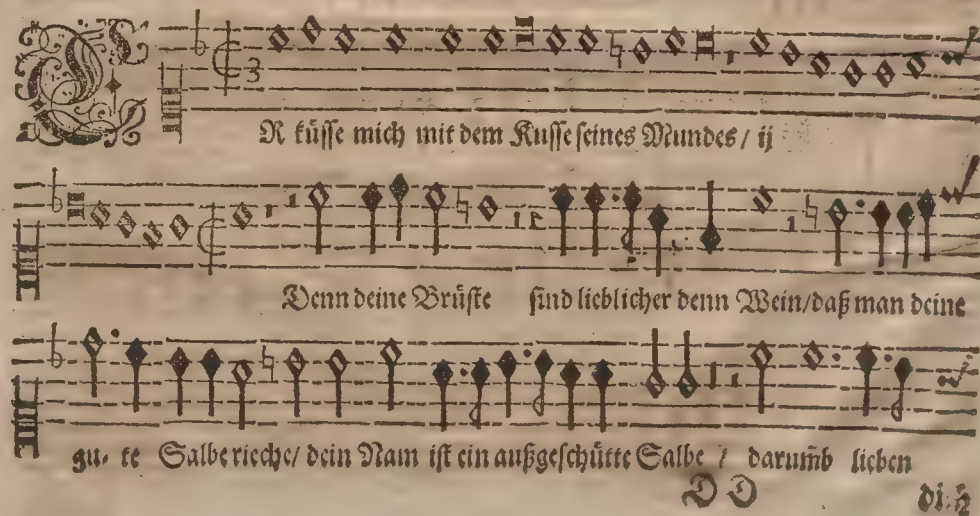 ER küsse mich mit dem Kusse seines Mundes / ij
Denn deine Brüste sind lieblicher denn Wein/daß man deine
gu- te Salbe rieche/ dein Nam ist ein außgeschütte Salbe / darumb lieben
D D
dich